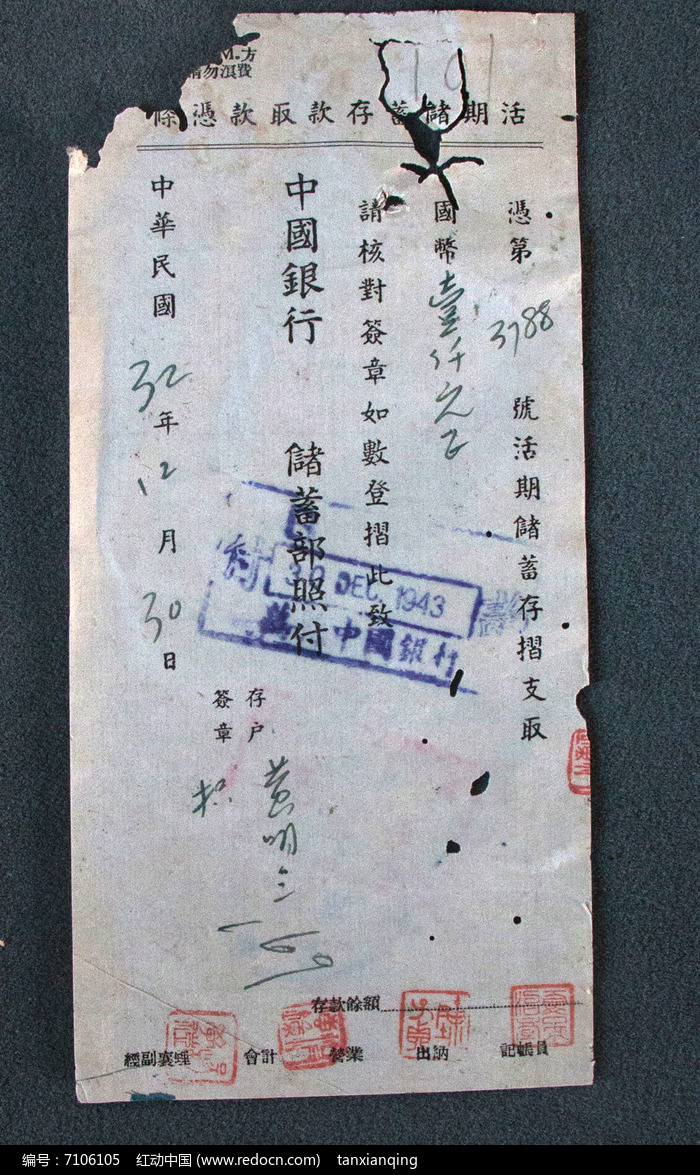 M.方
請勿濵費
活期儲蓄存款取款憑條
憑第 3788 號活期儲蓄存摺支取
國幣壹仟元正
請核對簽章如數登摺此致
中國銀行 儲蓄部照付
付
30 DEC. 1943
中國銀行
中華民國 32年12月30日
存戶
簽章
黃明
存款餘額
記帳員
出納
營業
會計
經副襄理
编号：7106105 红动中国 (www.redocn.com) tanxianqing